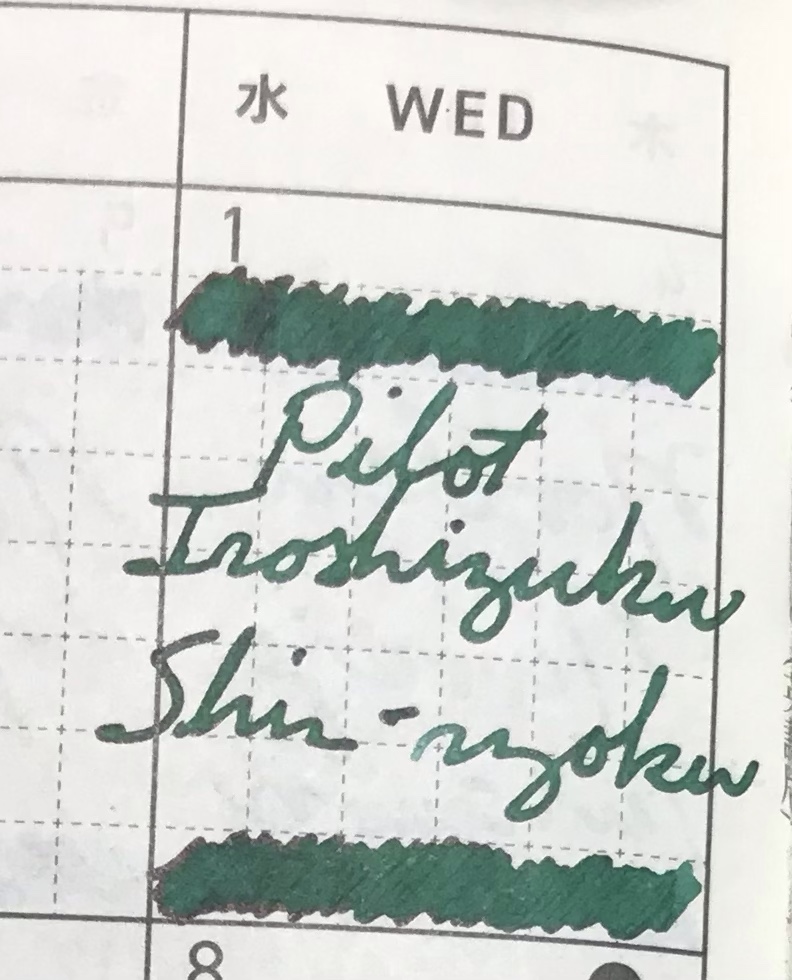 水 WED
1
Pilot
Iroshizuku
Shin-ryoku
8